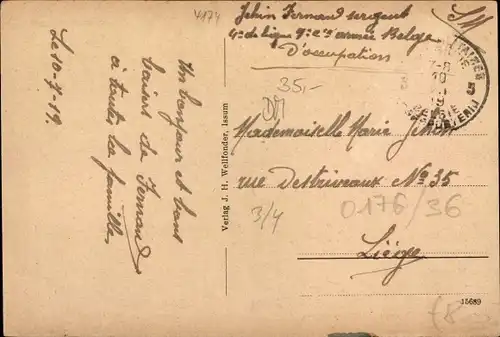 4174
Jehin Fernand sergent
4e de ligne 7e Cie armée Belge
D'occupation
S M
Le 10-7-19.
Un bonjour et bons
baisers de Fernand
à toute la famille
35,-
DM
Mademoiselle Marie Jehin
rue Destriveaux No 35
Liège
3/4
0176/36
Verlag J. H. Wellfonder, Issum
15689